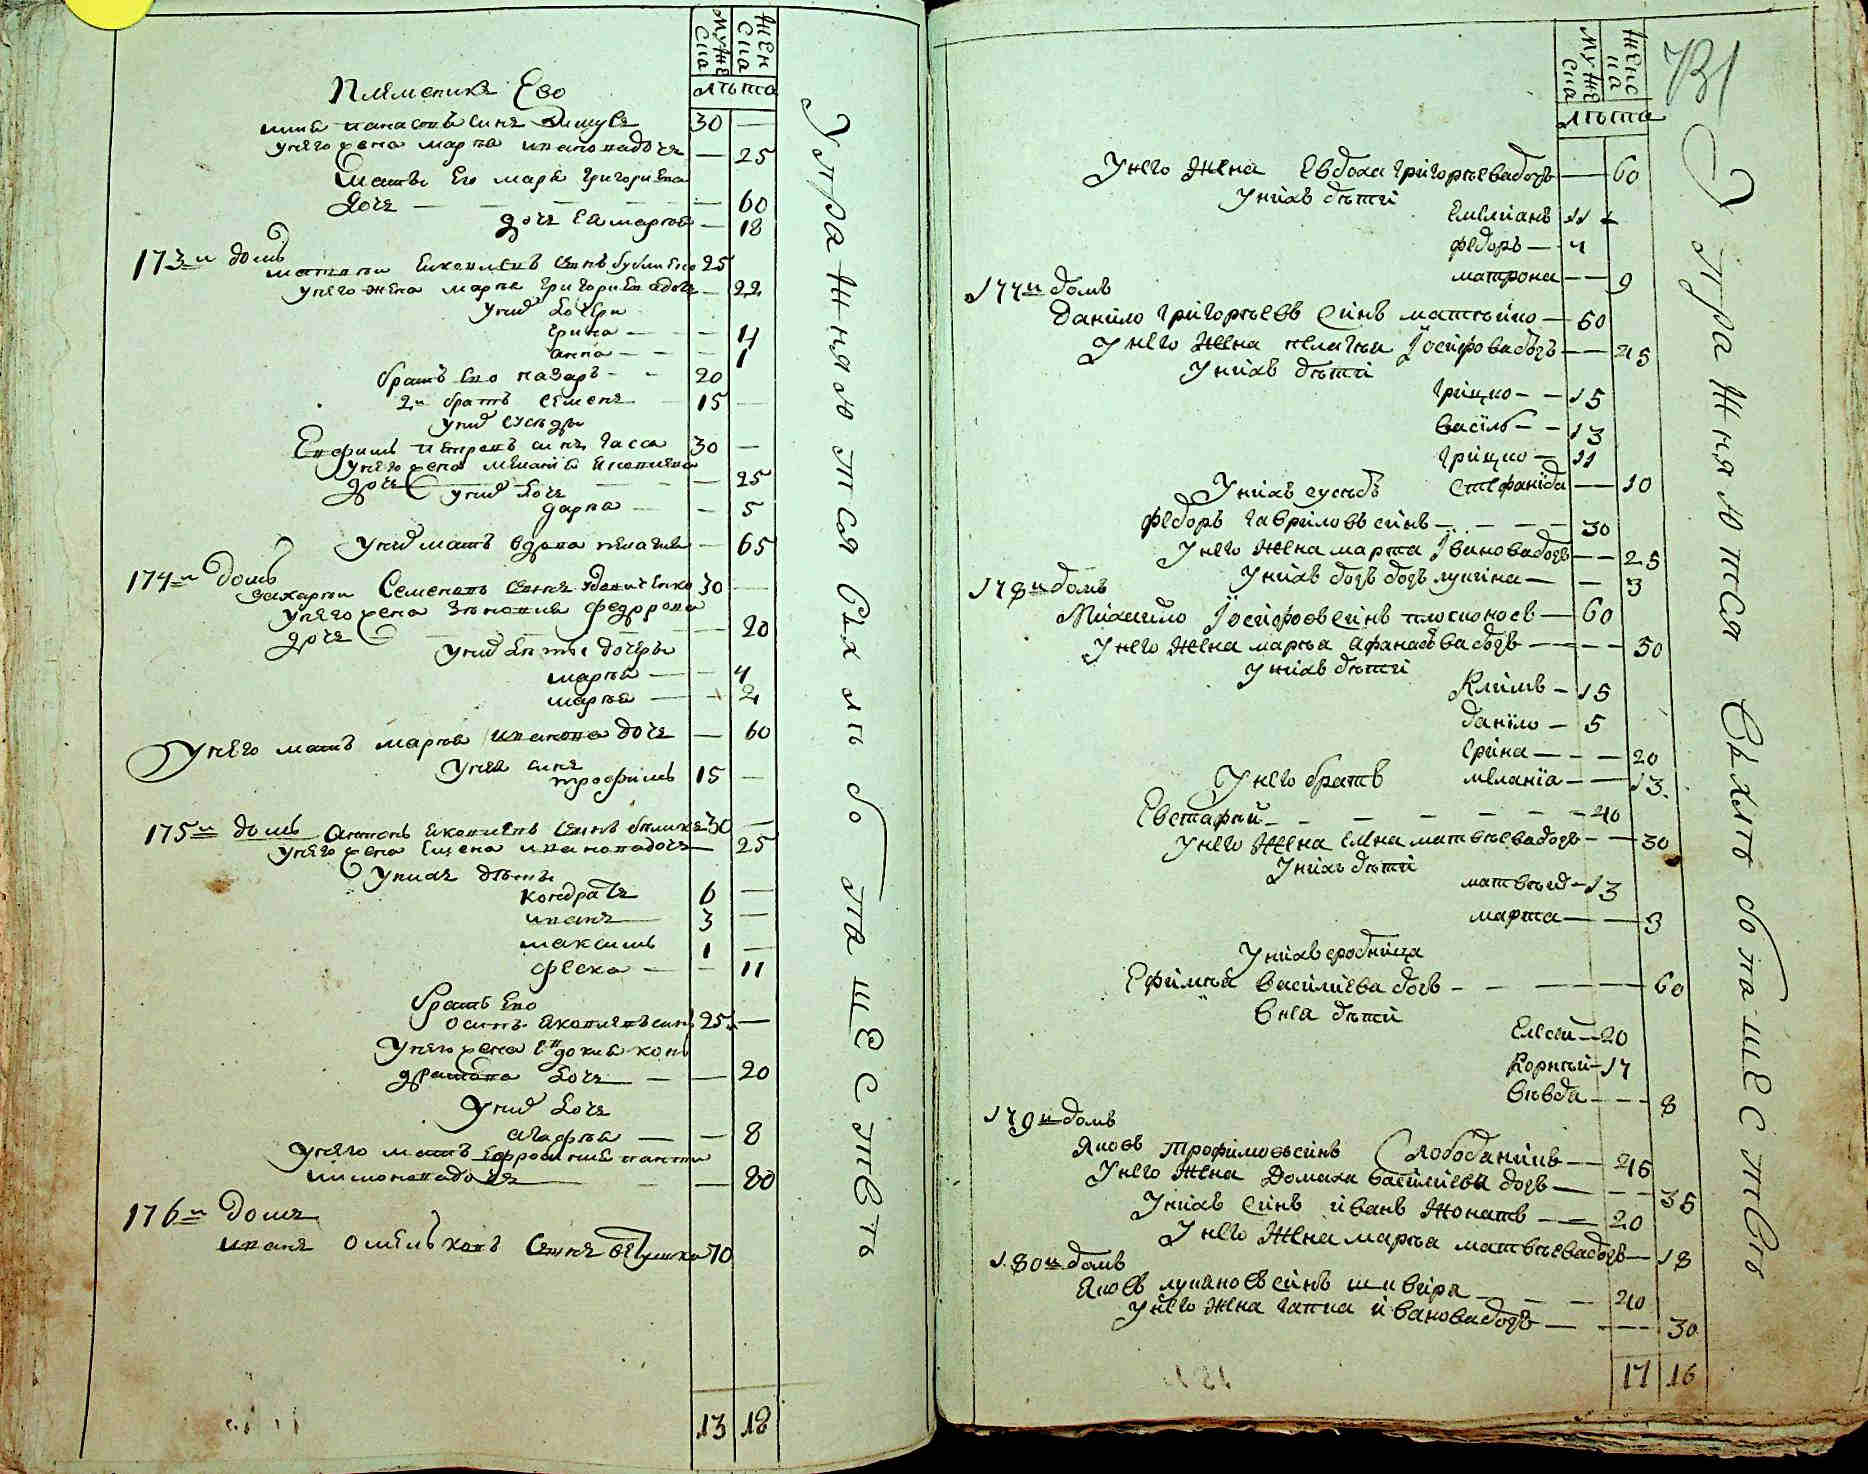 Муже ска
Жен ска
лѣта
Племеникъ Его
30 —
унего жена марѳа ивановадочь — 25
Мать Его марѳа григориева
Дочь — 60
дочь Ея марѳа — 18
173 и домъ
25
унего жена марѳа григориева дочь — 22
уних дочери
ерина — 4
анна — 1
братъ Его назаръ — 20
2 и братъ семенъ 15 —
уних сусѣды
Ефимъ петровъ синъ гасса 30 —
унего жена меланія яковлева
дочь — 25
уних дочь
дарка — 5
уних мать вдова пелагия — 65
174 и домъ
захарий Семеновъ синъ 30 —
унего жена зѣновия федорова
дочь — 20
уних дѣти дочеры
марѳа — 4
марѳа — 2
Унего мать марѳа иванова дочь — 60
унея синъ
трофимъ 15 —
175 и домъ Антонъ яковлевъ синъ 30 —
унего жена елена ивановадочь — 25
Уних дѣти
кондратъ 6 —
иванъ 3 —
максимъ 1 —
феска — 11
братъ Его
осипъ яковлевъ синъ 25 —
Унего жена Евдокия кон
дратова дочь — 20
Уних дочь
агафия — 8
унего мать Ефросиния панти
лимоновадочь — 80
176 и домъ
иванъ омельковъ синъ 70
13 18
Упражняются въ хлѣбопашествѣ
731
Муже ска
Женс ка
лѣта
Унего Жена Евдоха григорьевадочь — 60
Уних дѣти
Емелианъ 11
федоръ — 4
матрона — 9
177 и домъ
Данило григорьевъ синъ матвѣйко — 50
Унего Жена пелагия Иосифовадочь — 45
Уних дѣти
грицко — 15
василь — 13
грицко — 11
стефанида — 10
Уних сусѣдъ
федоръ гавриловъ синъ — 30
Унего Жена марта Ивановадочь — 25
Уних дочь лукіна — 3
178 и домъ
Михайло Иосифовъ синъ плосконосъ — 60
Унего Жена марѳа афанасьевадочь — 50
Уних дѣти
Климъ — 15
данило — 5
ерина — 20
меланіа — 13
Унего братъ
Евстафий — 40
Унего Жена елена матвѣевадочь — 30
Уних дѣти
матвѣй — 13
марта — 3
Уних сродница
Ефимія василиева дочь — 60
внея дѣти
Елесѣй — 20
Корнѣй — 17
8
179 и домъ
Яковъ трофимовъ синъ Слободанинъ — 46
Унего Жена Домаха василиева дочь — 35
Уних синъ иванъ Жонатъ — 20
Унего Жена марѳа матвѣевадочь — 18
180 и домъ
Яковъ лукяновъ синъ шквира — 40
Унего жена гапка ивановадочь — 30
17 16
Упражняются въ хлѣбопашествѣ